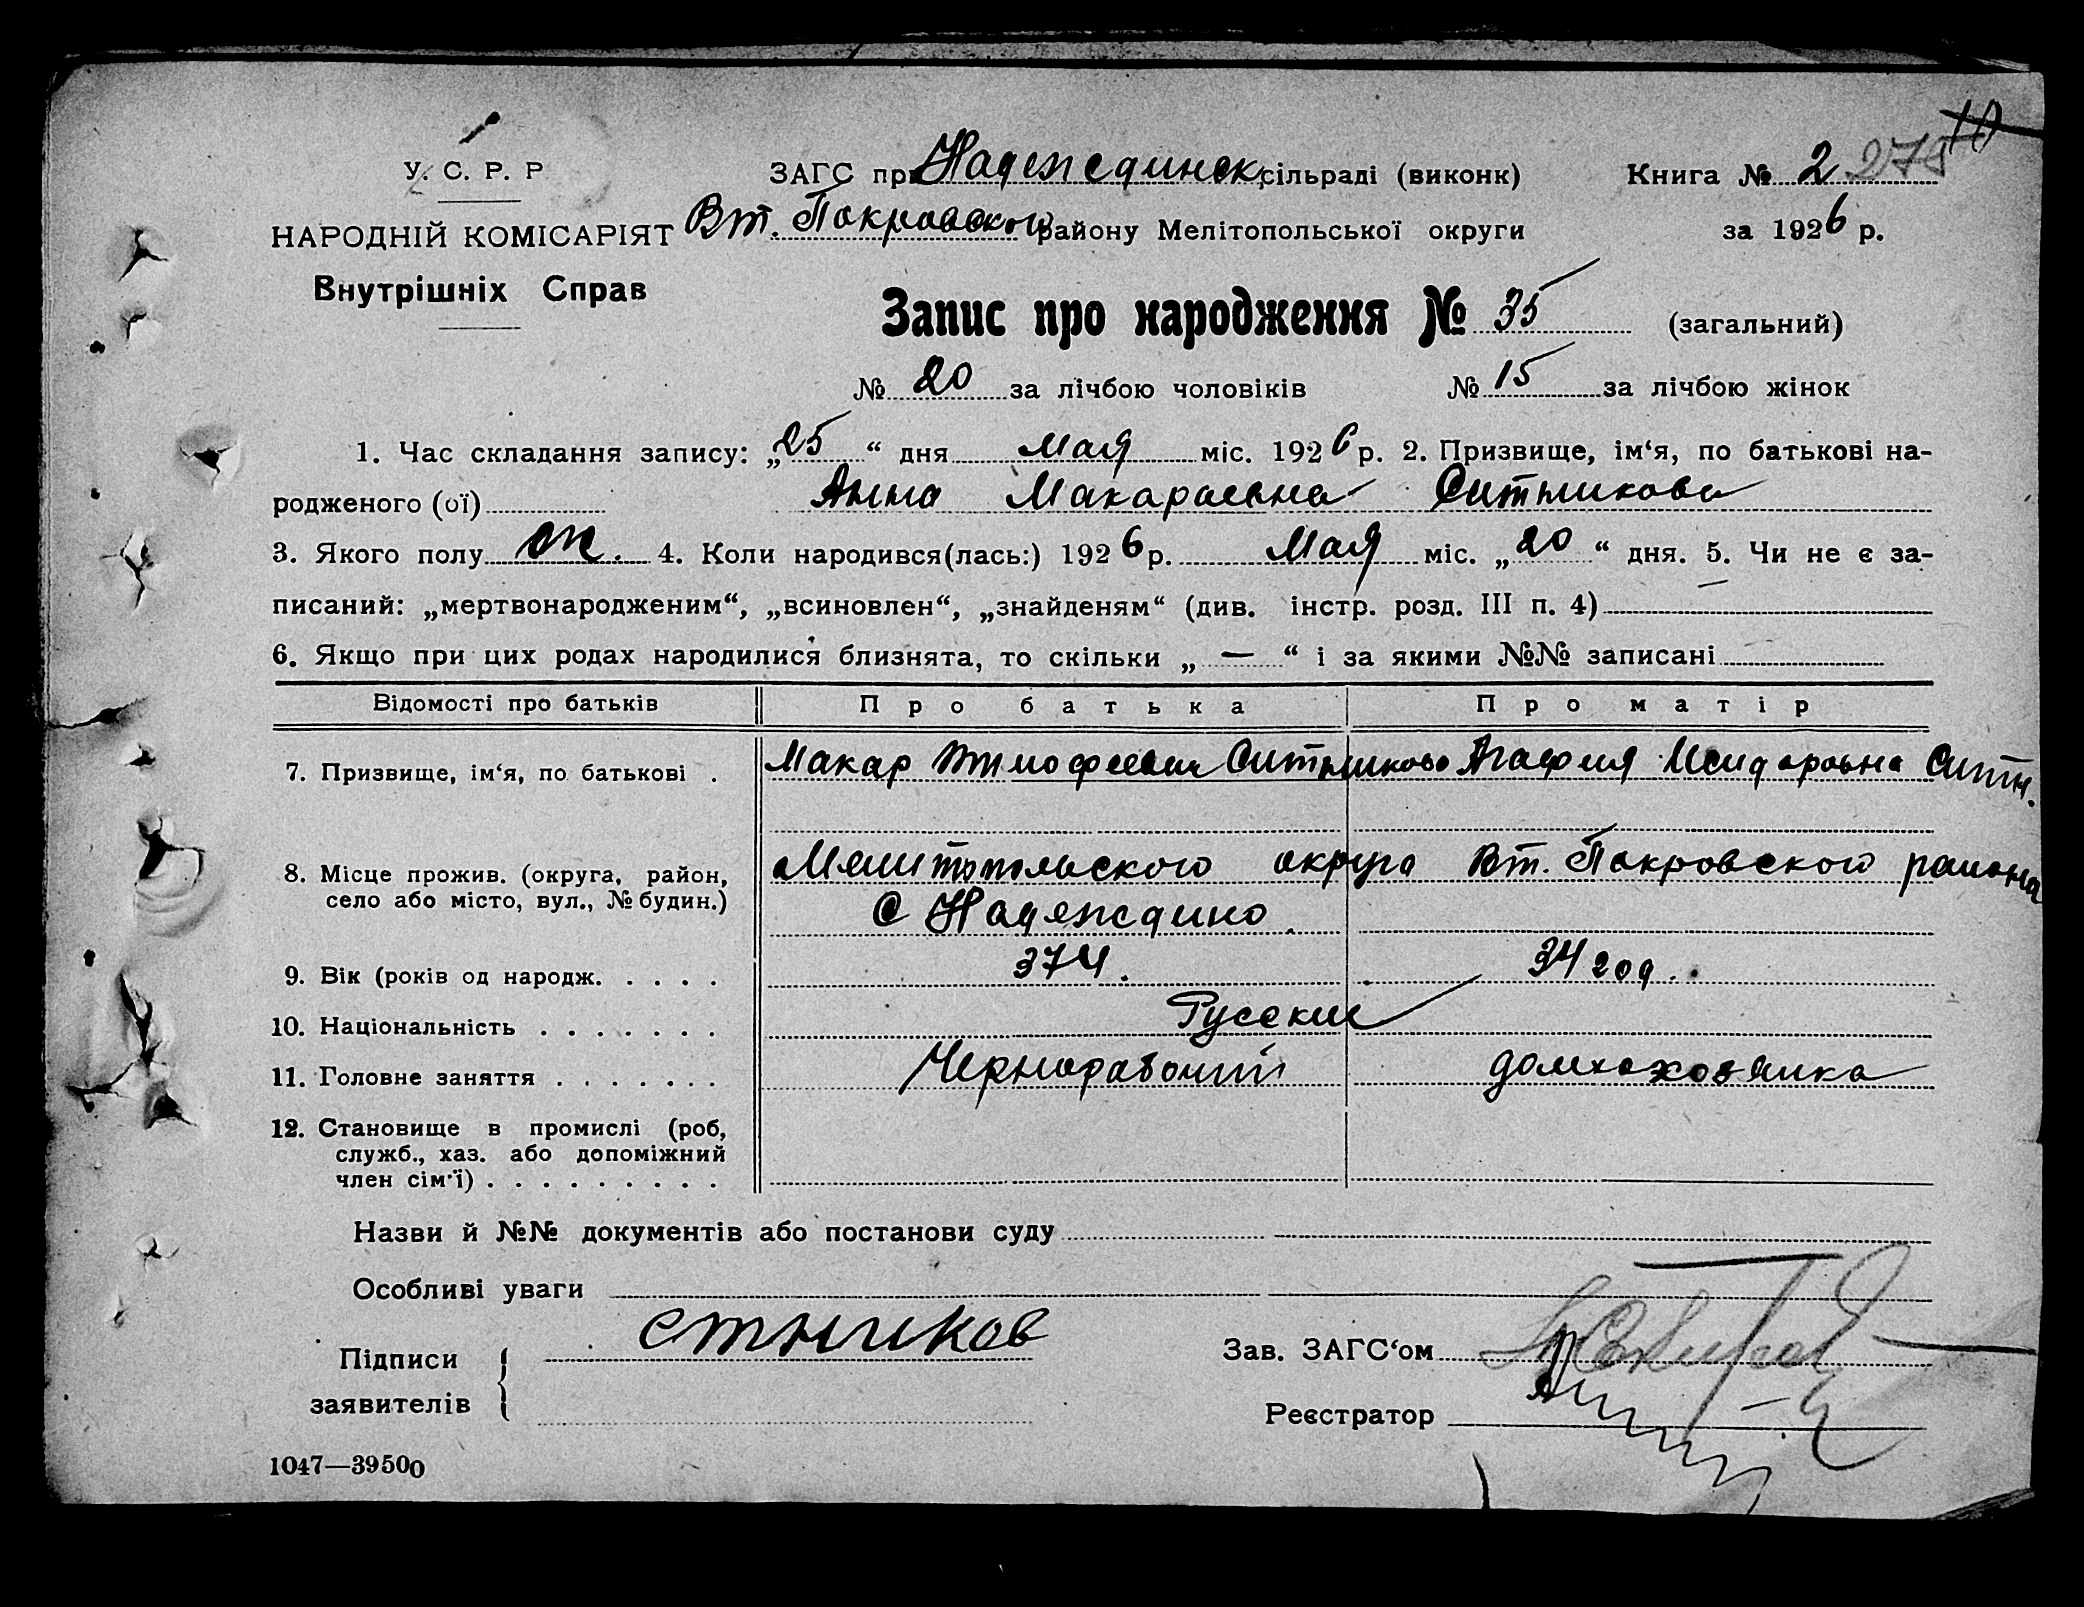 У. С. Р. Р
НАРОДНІЙ КОМІСАРІЯТ
Внутрішніх Справ
ЗАГС при Надеждинск. сільраді (виконк)
Вт. Покровского району Мелітопольської округи
Книга № 2 279
за 1926 р.
Запис про народження № 35 (загальний)
№ 20 за лічбою чоловіків № 15 за лічбою жінок
1. Час складання запису: „25“ дня мая міс. 1926 р. 2. Призвище, ім‘я, по батькові на-
родженого (ої) Анна Макаровна Ситникова
3. Якого полу ж. 4. Коли народився(лась:) 1926 р. Мая міс. „20“ дня. 5. Чи не є за-
писаний: „мертвонародженим“, „всиновлен“, „знайденям“ (див. інстр. розд. III п. 4) —
6. Якщо при цих родах народилися близнята, то скільки „ — “ і за якими №№ записані
Відомості про батьків Про батька Про матір
7. Призвище, ім‘я, по батькові . Макар Тимофеевич Ситников Агафия Исидоровна Ситн.
8. Місце прожив. (округа, район, Мелитопольского округа Вт. Покровского района
село або місто, вул., № будин.) С Надеждино
9. Вік (років од народж. . . . . 37 л. 34 год.
10. Національність . . . . . . . Русские
11. Головне заняття . . . . . . . Чернорабочий домохозяйка
12. Становище в промислі (роб,
служб., хаз. або допоміжний
член сім‘ї) . . . . . . . . .
Назви й №№ документів або постанови суду
Особливі уваги
Підписи
заявителів
Стников
Зав. ЗАГС‘ом
Реєстратор
1047—39500